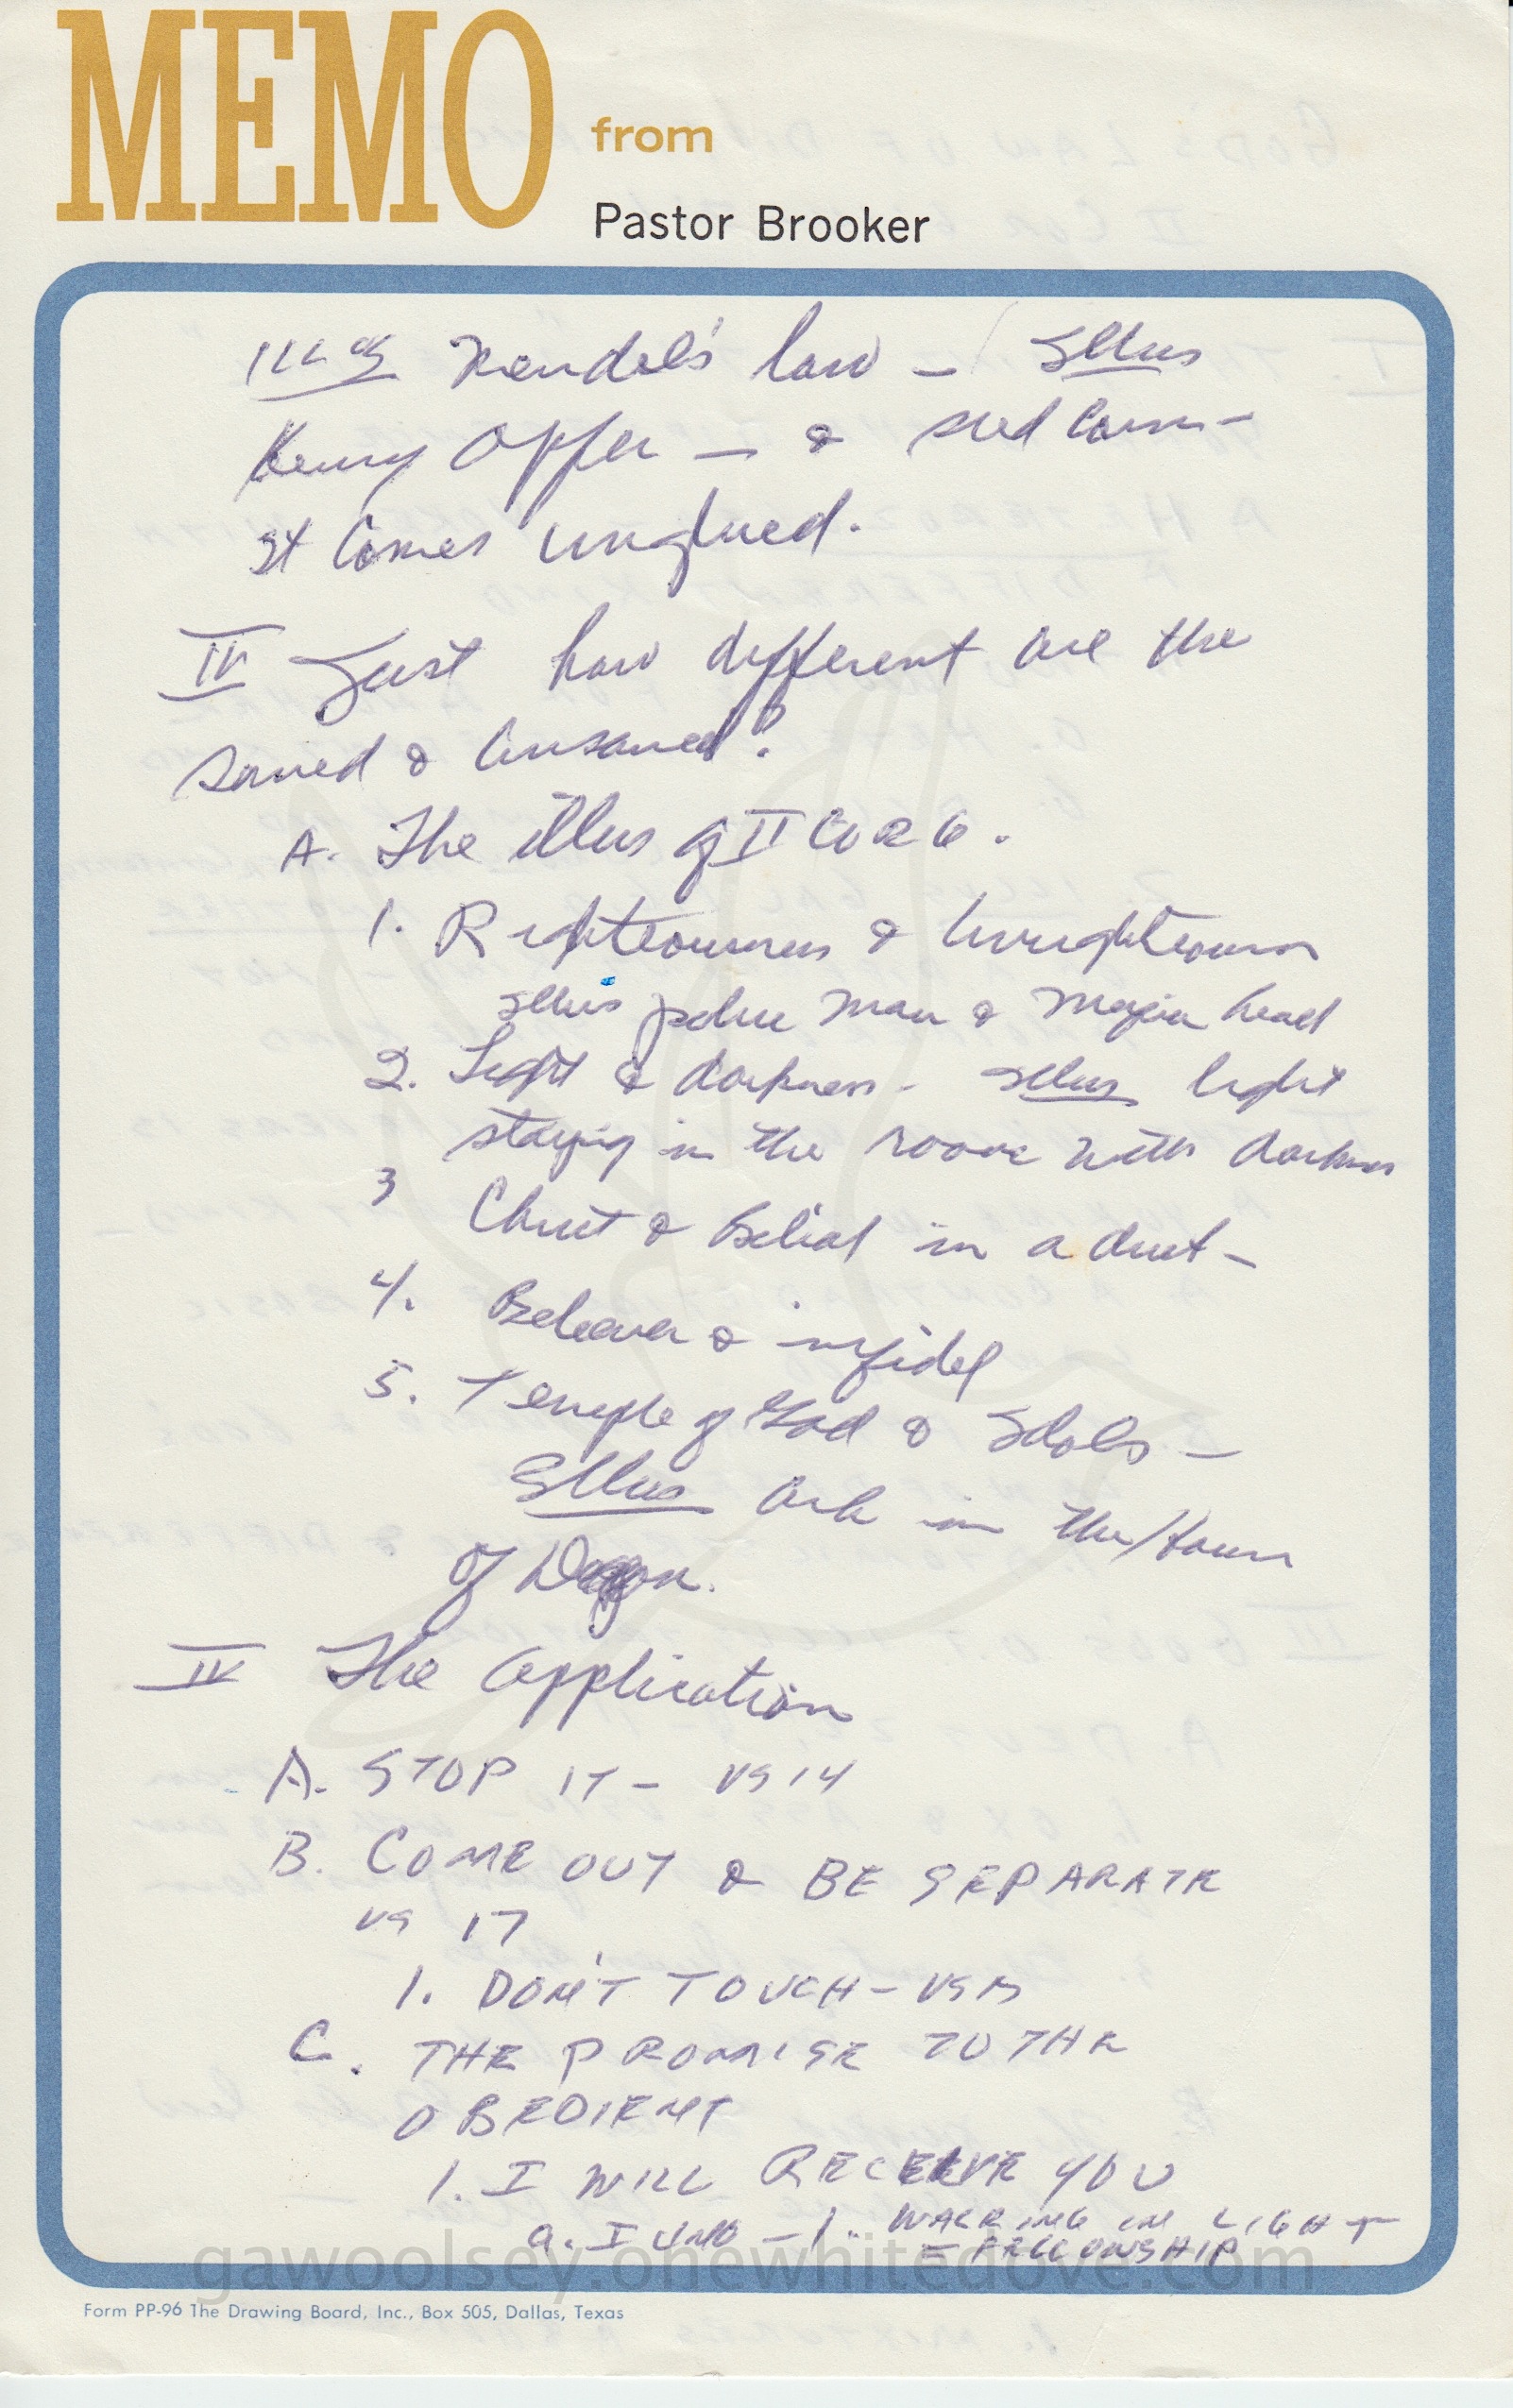 MEMO from
Pastor Brooker
Mendel's law - Illus
Henry Offer - & seed Corn -
It Comes unglued.
IV Just how different are the
Saved & Unsaved?
A. The illus of II COR 6.
1. Righteousness & Unrighteousn
Illus police man & Mafia head
2. Light & darkness - Illus light
staying in the room with darkness
3 Christ & Belial in a duet -
4. Believer & infidel
5. Temple of God & Idols -
Illus Ark in the house
of Dagon.
IV The Application
A. STOP IT - VS 14
B. COME OUT & BE SEPARATE
VS 17
1. DON'T TOUCH - VS
C. THE PROMISE TO THE
OBEDIENT
1. I WILL RECEIVE YOU
a. I JNO - 1. WALKING IN LIGHT
= FELLOWSHIP
gawoolsey.onewhitedove.com
Form PP-96 The Drawing Board, Inc., Box 505, Dallas, Texas